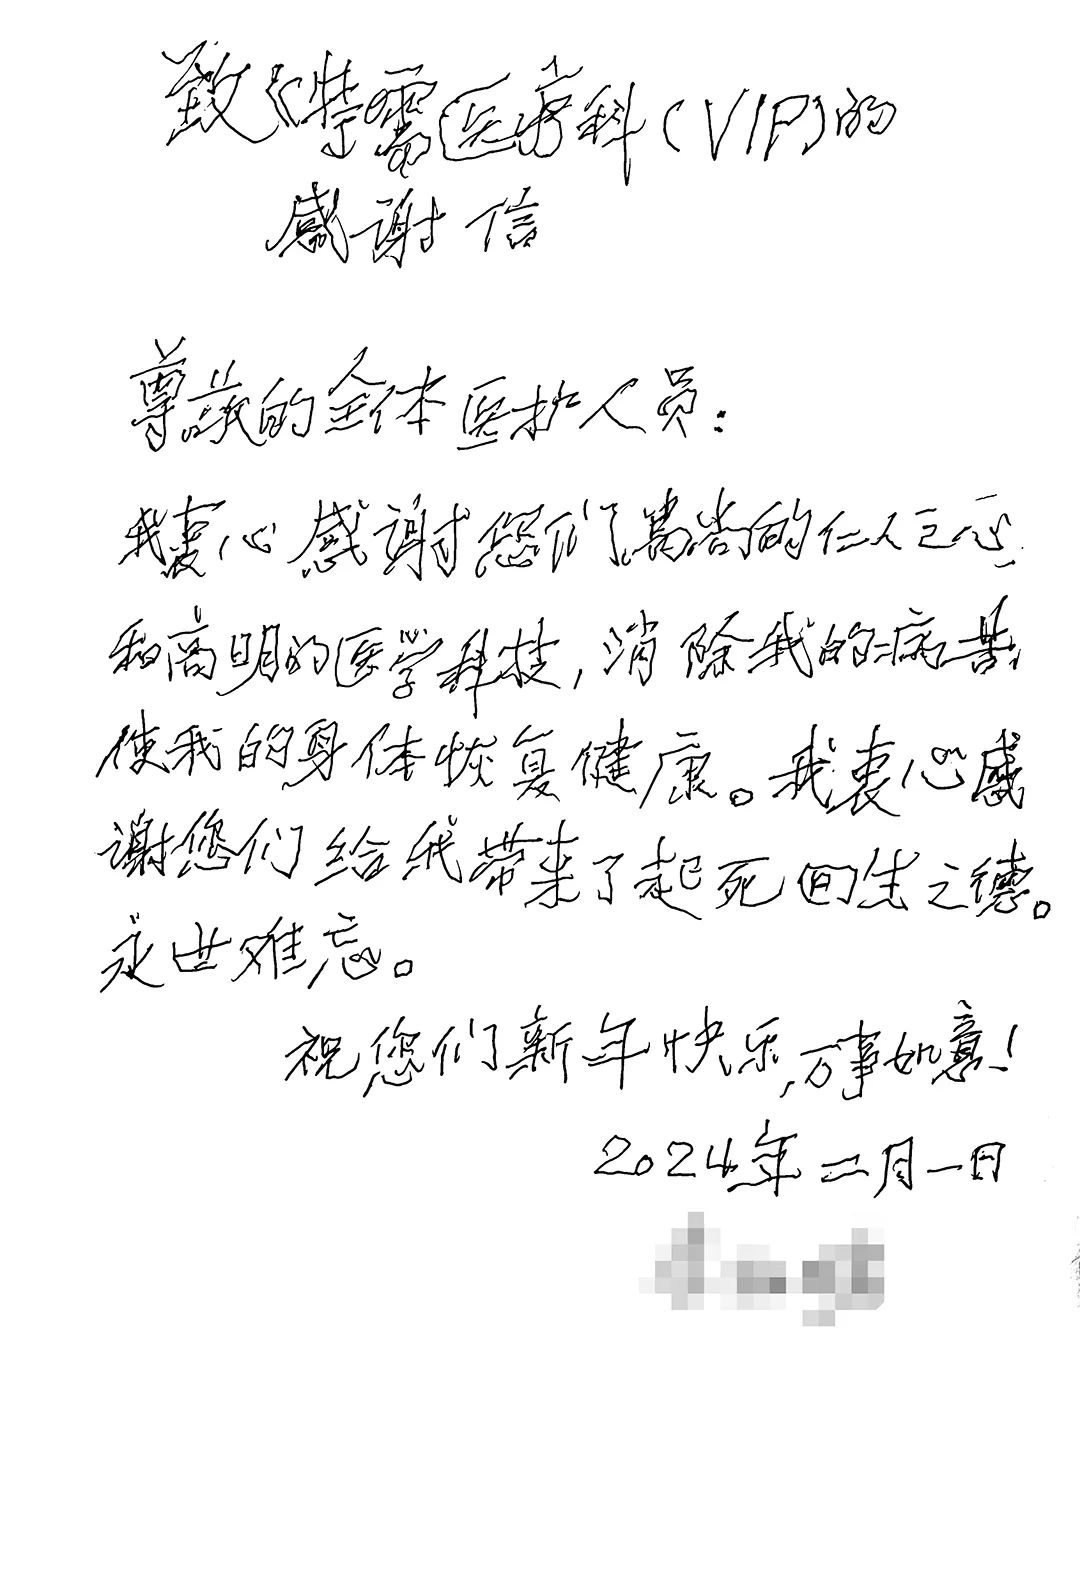 致《特需医疗科(VIP)的
感谢信
尊敬的全体医护人员:
我衷心感谢您们高尚的仁人之心
和高明的医学科技,消除我的病苦,
使我的身体恢复健康。我衷心感
谢您们给我带来了起死回生之德。
永世难忘。
祝您们新年快乐,万事如意!
2024年二月一日